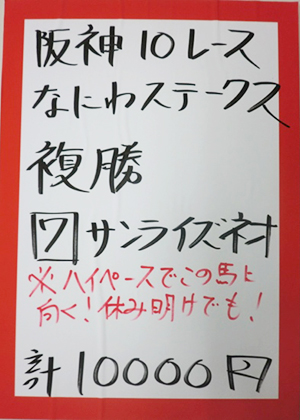 阪神10レース
なにわステークス
複勝
7 サンライズネオ
※ハイペースでこの馬に
向く!休み明けでも!
計10000円